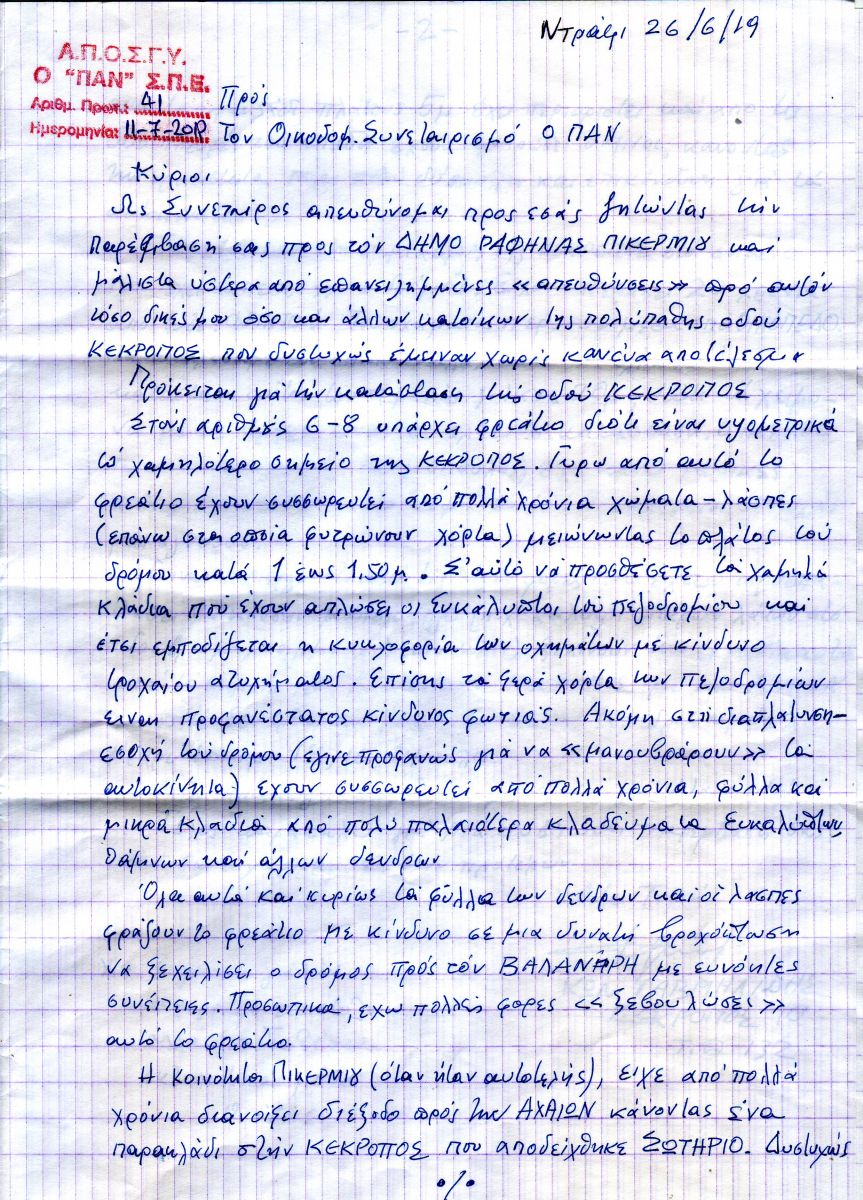 Ντράφι 26/6/19
Α.Π.Ο.Σ.Γ.Υ.
Ο "ΠΑΝ" Σ.Π.Ε.
Αριθμ. Πρωτ.: 41
Ημερομηνία: 11-7-2019
Πρός
Τον Οικοδομ. Συνεταιρισμό Ο ΠΑΝ
Κύριοι
Ως Συνεταίρος απευθύνομαι προς εσάς ζητώντας την
παρέμβασή σας προς τόν ΔΗΜΟ ΡΑΦΗΝΑΣ ΠΙΚΕΡΜΙΟΥ και
μάλιστα ύστερα από επανειλημμένες «απευθύνσεις» πρό αυτόν
τόσο δικές μου όσο και άλλων κατοίκων της πολύπαθης οδού
ΚΕΚΡΟΠΟΣ που δυστυχώς έμειναν χωρίς κανένα αποτέλεσμα
Πρόκειται γιά τήν κατάσταση της οδού ΚΕΚΡΟΠΟΣ
Στούς αριθμούς 6-8 υπάρχει φρεάτιο διότι είναι υψομετρικά
το χαμηλότερο σημείο της ΚΕΚΡΟΠΟΣ. Γυρω από αυτό το
φρεάτιο έχουν συσσωρευτεί από πολλά χρόνια χώματα - λάσπες
(επάνω στα οποία φυτρώνουν χόρτα) μειώνωντας το πλάτος τού
δρόμου κατά 1 έως 1,50 μ. Σ'αυτό νά προσθέσετε τα χαμηλά
κλάδια πού έχουν απλώσει οι Ευκάλυπτοι του πεζοδρομίου και
έτσι εμποδίζεται η κυκλοφορία των οχημάτων με κίνδυνο
τροχαίου ατυχήματος. Επίσης τα ξερά χόρτα των πεζοδρομίων
ειναι προφανέστατος κίνδυνος φωτιάς. Ακόμη στη διαπλάτυνση-
εσοχή τού δρόμου (εγινε προφανώς γιά να «μανουβράρουν» τα
αυτοκίνητα) εχουν συσσωρευτεί από πολλά χρόνια, φύλλα και
μικρά κλαδιά από πολύ παλαιότερα κλαδεύματα ευκαλύπτων,
θάμνων καί άλλων δενδρων
Όλα αυτά και κυρίως τα φύλλα των δενδρων και οι λάσπες
φράζουν το φρεάτιο με κίνδυνο σε μια δυνατή βροχόπτωση
να ξεχειλίσει ο δρόμος πρός τόν ΒΑΛΑΝΑΡΗ με ευνόητες
συνέπειες. Προσωπικά, εχω πολλές φορες «ξεβουλώσει»
αυτό το φρεάτιο.
Η Κοινότητα ΠΙΚΕΡΜΙΟΥ (όταν ήταν αυτοτελής), ειχε από πολλά
χρόνια διανοίξει διέξοδο πρός την ΑΧΑΙΩΝ κάνοντας ένα
παρακλάδι στήν ΚΕΚΡΟΠΟΣ που αποδείχθηκε ΣΩΤΗΡΙΟ. Δυστυχώς
./.